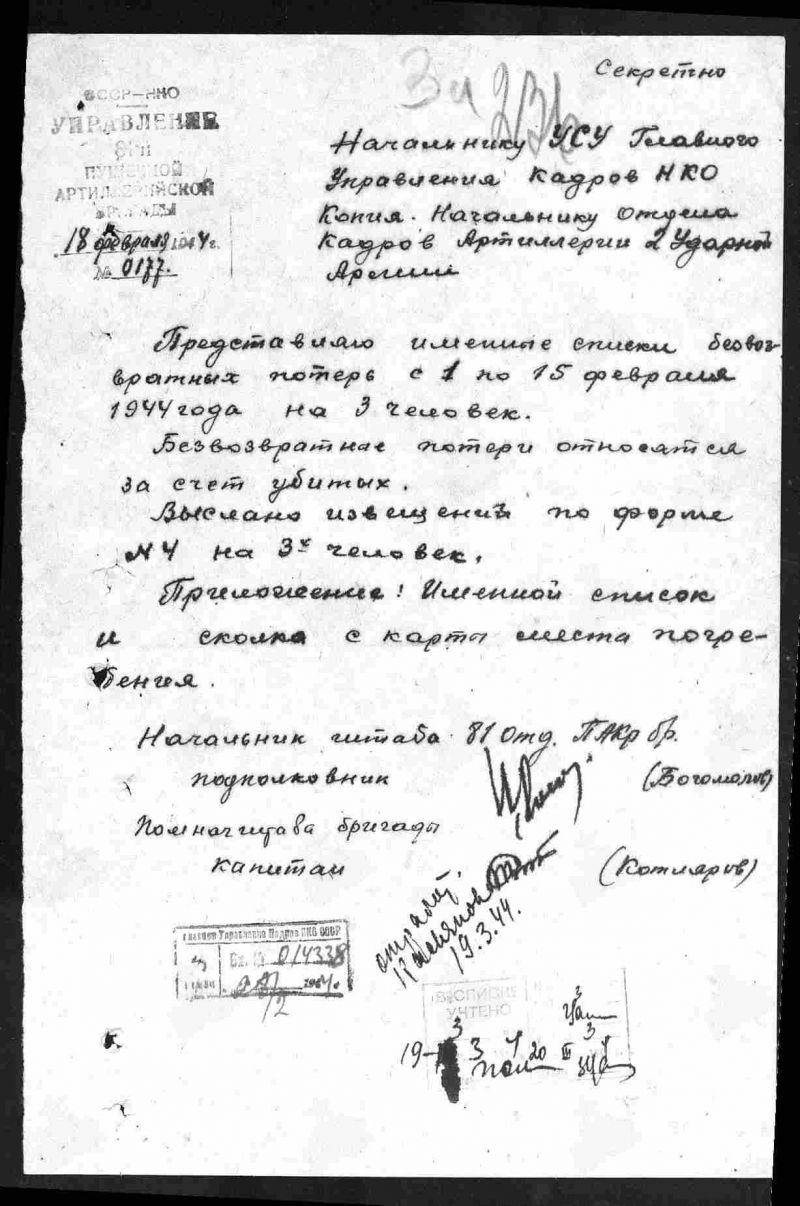 Секретно
СССР-НКО
УПРАВЛЕНИЕ
81-й
ПУШЕЧНОЙ
АРТИЛЛЕРИЙСКОЙ
БРИГАДЫ
18 февраля 1944 г.
№ 0177.
Начальнику УСУ Главного
Управления Кадров НКО
Копия. Начальнику отдела
Кадров Артиллерии 2 Ударной
Армии
Представляю именные списки безвоз-
вратных потерь с 1 по 15 февраля
1944 года на 3 человек.
Безвозвратные потери относятся
за счет убитых.
Выслано извещений по форме
№4 на 3х человек.
Приложение: Именной список
и сколка с карты места погре-
бения.
Начальник штаба 81 Отд. ПАКр бр.
подполковник (Богомолов)
Помначштаба бригады
капитан (Котляров)
19.3.44.
Главное Управление Кадров НКО СССР
Вх. № 014338
УЧТЕНО